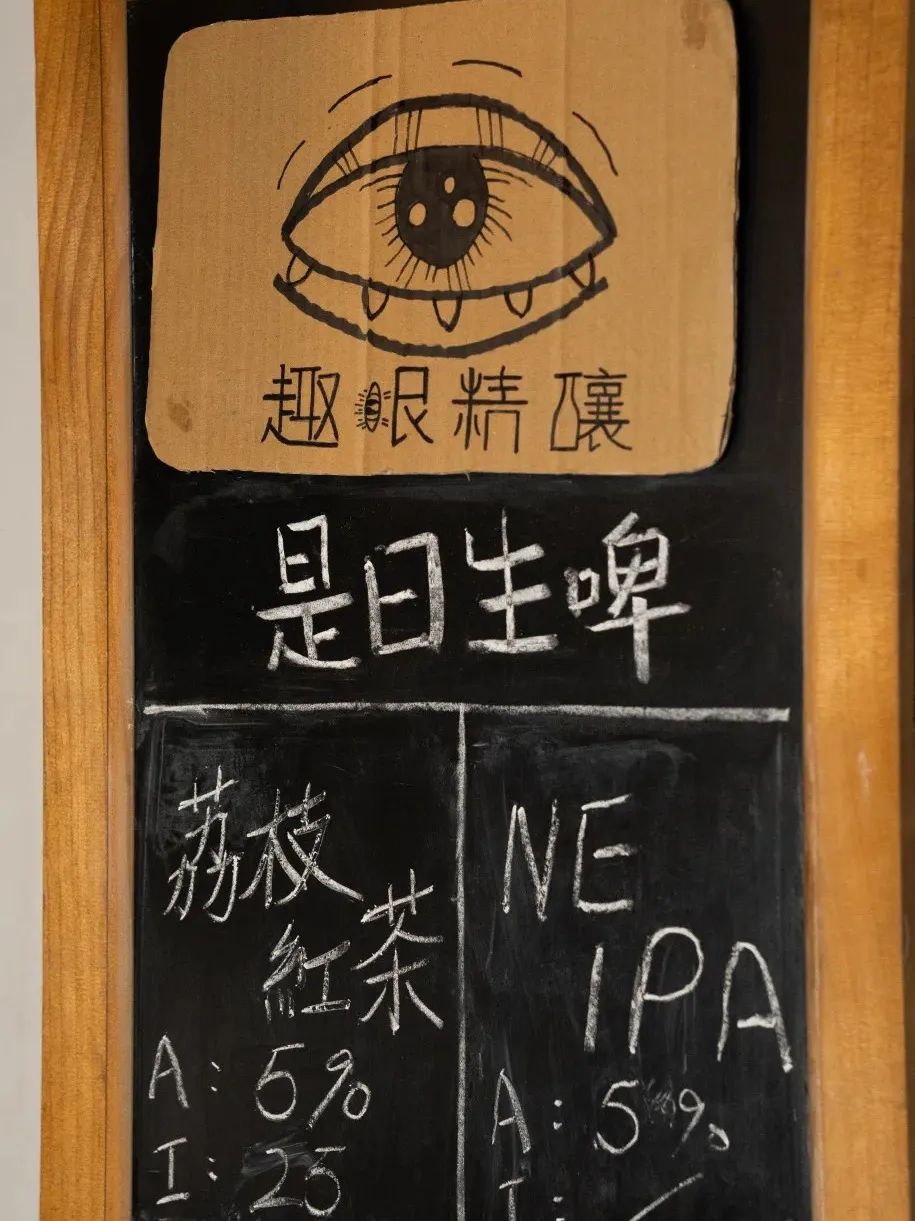 趣眼精釀
是日生啤
荔枝
紅茶
A: 5%
I: 25
NE
IPA
A: 5%
I: